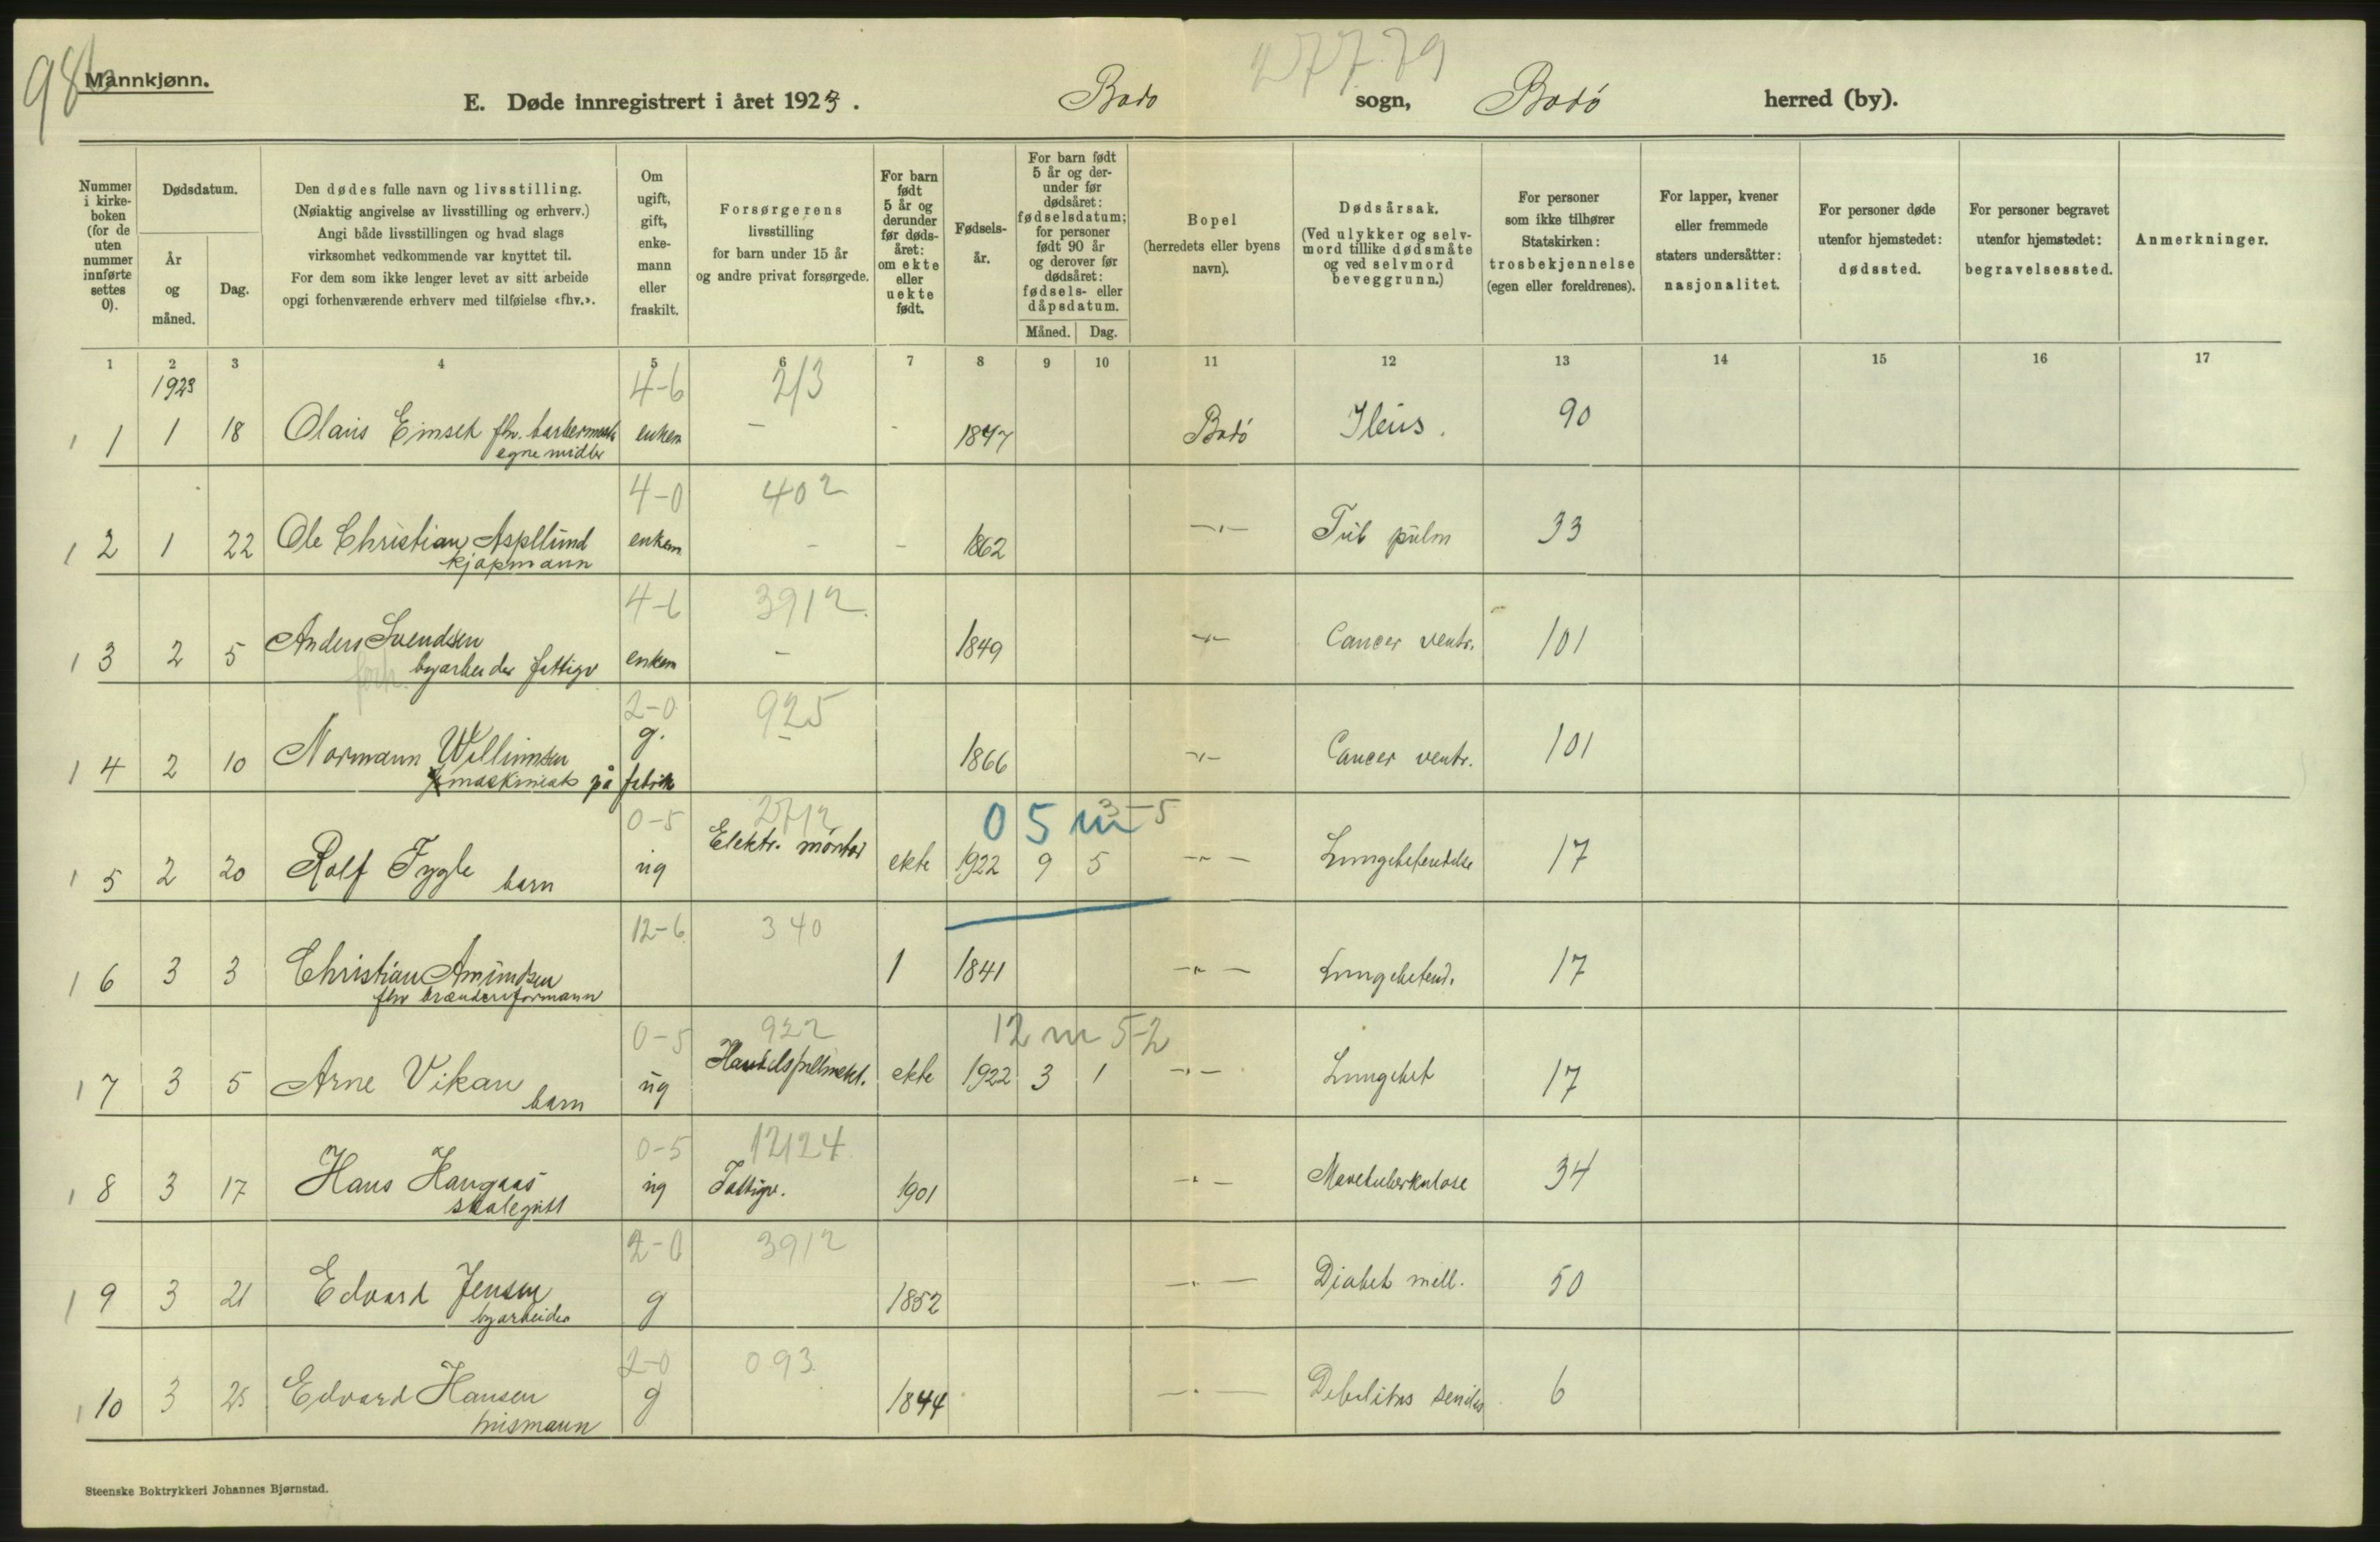 98b
Mannkjønn.
27779
E. Døde innregistrert i året 1923. Bodo sogn, Bodó herred (by).
Nummer i kirke-boken (for de uten nummer innførte settes 0).
Dødsdatum.
År og måned.
Dag.
Den dødes fulle navn og livsstilling.
(Nøiaktig angivelse av livsstilling og erhverv.)
Angi både livsstillingen og hvad slags
virksomhet vedkommende var knyttet til.
For dem som ikke lenger levet av sitt arbeide
opgi forhenværende erhverv med tilføielse «fhv.».
Om ugift, gift, enke-mann eller fraskilt.
Forsørgerens
livsstilling
for barn under 15 år
og andre privat forsørgede.
For barn født 5 år og derunder før døds-året: om ekte eller uekte født.
Fødsels-år.
For barn født 5 år og der-under før dødsåret: fødselsdatum; for personer født 90 år og derover før dødsåret: fødsels- eller dåpsdatum.
Måned. Dag.
Bopel
(herredets eller byens
navn).
Dødsårsak.
(Ved ulykker og selv-
mord tillike dødsmåte
og ved selvmord
beveggrunn.)
For personer
som ikke tilhører
Statskirken:
trosbekjennelse
(egen eller foreldrenes).
For lapper, kvener
eller fremmede
staters undersåtter:
nasjonalitet.
For personer døde
utenfor hjemstedet:
dødssted.
For personer begravet
utenfor hjemstedet:
begravelsessted.
Anmerkninger.
1 2 3 4 5 6 7 8 9 10 11 12 13 14 15 16 17
1923 4-6 213
1 1 1 18 Olaus fhv. enkem — - 1847 Bodó Ileus. 90
egne midler
4-0 402
1 2 1 22 Ole Christian Aspllund enkem — — 1862 —"— Tub pulm 33
kjøpmann
4-6 3912
1 3 2 5 Anders Svendsen enkem — 1849 —"— Cancer ventr. 101
forh. byarbeider fattigv
2-0 925
1 4 2 10 Normann Willumsen g. — 1866 —"— Cancer ventr. 101
maskinist på fabrik
0-5 2712 05 m 3-5
1 5 2 20 Rolf Tygle barn ug Elektr. montør ekte 1922 9 5 —"— Lungebetendelse 17
12-6 340
1 6 3 3 Christian Amundsen 1 1841 —"— Lungebetend. 17
fhv brænderiformann
0-5 922 12 m 5-2
1 7 3 5 Arne Vikan barn ug ekte 1922 3 1 —"— Lungebet 17
0-5 12124
1 8 3 17 Hans Haugaas ug Fattigv. 1901 —"— Mavetuberkulose 34
skolegutt
2-0 3912
1 9 3 21 Edvard Jensen g 1852 —"— Diabet mell. 50
byarbeider
2-0 093
1 10 3 25 Edvard Hansen g 1844 —"— Debilitas senilis 6
husmann
Steenske Boktrykkeri Johannes Bjørnstad.